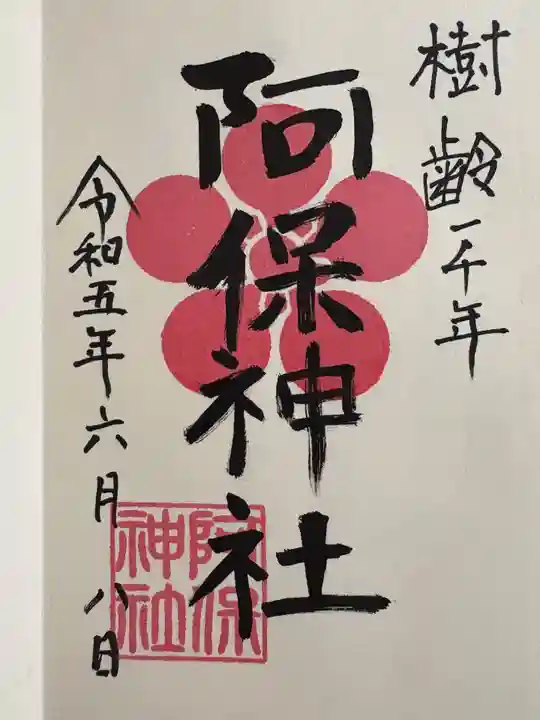 樹齢一千年
阿保神社
令和五年六月八日
阿保
神社